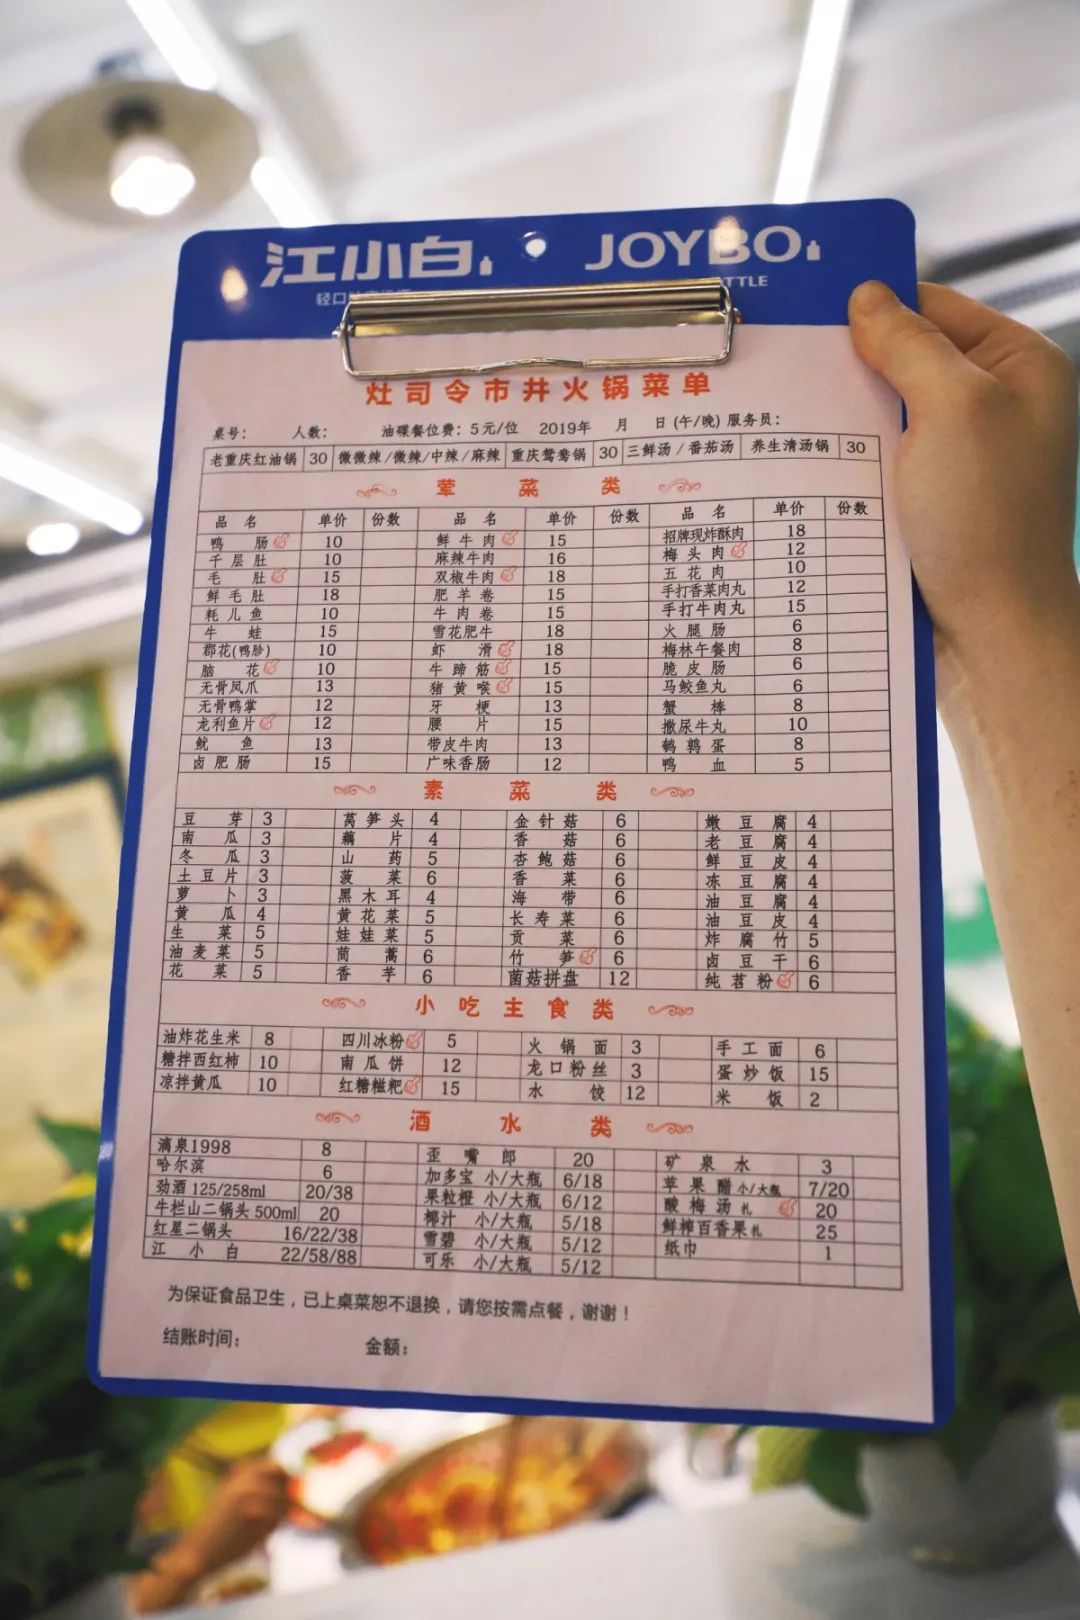 江小白 JOYBO
轻口 TTLE
灶司令市井火锅菜单
桌号: 人数: 油碟餐位费: 5元/位 2019年 月 日 (午/晚) 服务员:
老重庆红油锅 30 微微辣/微辣/中辣/麻辣 重庆鸳鸯锅 30 三鲜汤/番茄汤 养生清汤锅 30
荤菜类
品名 单价 份数 品名 单价 份数 品名 单价 份数
鸭肠 10 鲜牛肉 15 招牌现炸酥肉 18
千层肚 10 麻辣牛肉 16 梅头肉 12
毛肚 15 双椒牛肉 18 五花肉 10
鲜毛肚 18 肥羊卷 15 手打香菜肉丸 12
耗儿鱼 10 牛肉卷 15 手打牛肉丸 15
牛蛙 15 雪花肥牛 18 火腿肠 6
郡花(鸭胗) 10 虾滑 18 梅林午餐肉 8
脑花 10 牛蹄筋 15 脆皮肠 6
无骨凤爪 13 猪黄喉 15 马鲛鱼丸 6
无骨鸭掌 12 牙梗 13 蟹棒 8
龙利鱼片 12 腰片 15 撒尿牛丸 10
鱿鱼 13 带皮牛肉 13 鹌鹑蛋 8
卤肥肠 15 广味香肠 12 鸭血 5
素菜类
豆芽 3 莴笋头 4 金针菇 6 嫩豆腐 4
南瓜 3 藕片 4 香菇 6 老豆腐 4
冬瓜 3 山药 5 杏鲍菇 6 鲜豆皮 4
土豆片 3 菠菜 6 香菜 6 冻豆腐 4
萝卜 3 黑木耳 4 海带 6 油豆腐 4
黄瓜 4 黄花菜 5 长寿菜 6 油豆皮 4
生菜 5 娃娃菜 5 贡菜 6 炸腐竹 5
油麦菜 5 茼蒿 6 竹笋 6 卤豆干 6
花菜 5 香芋 6 菌菇拼盘 12 纯苕粉 6
小吃主食类
油炸花生米 8 四川冰粉 5 火锅面 3 手工面 6
糖拌西红柿 10 南瓜饼 12 龙口粉丝 3 蛋炒饭 15
凉拌黄瓜 10 红糖糍粑 15 水饺 12 米饭 2
酒水类
漓泉1998 8 歪嘴郎 20 矿泉水 3
哈尔滨 6 加多宝 小/大瓶 6/18 苹果醋 小/大瓶 7/20
劲酒 125/258ml 20/38 果粒橙 小/大瓶 6/12 酸梅汤 扎 20
牛栏山二锅头 500ml 20 椰汁 小/大瓶 5/18 鲜榨百香果 扎 25
红星二锅头 16/22/38 雪碧 小/大瓶 5/12 纸巾 1
江小白 22/58/88 可乐 小/大瓶 5/12
为保证食品卫生，已上桌菜恕不退换，请您按需点餐，谢谢！
结账时间: 金额: